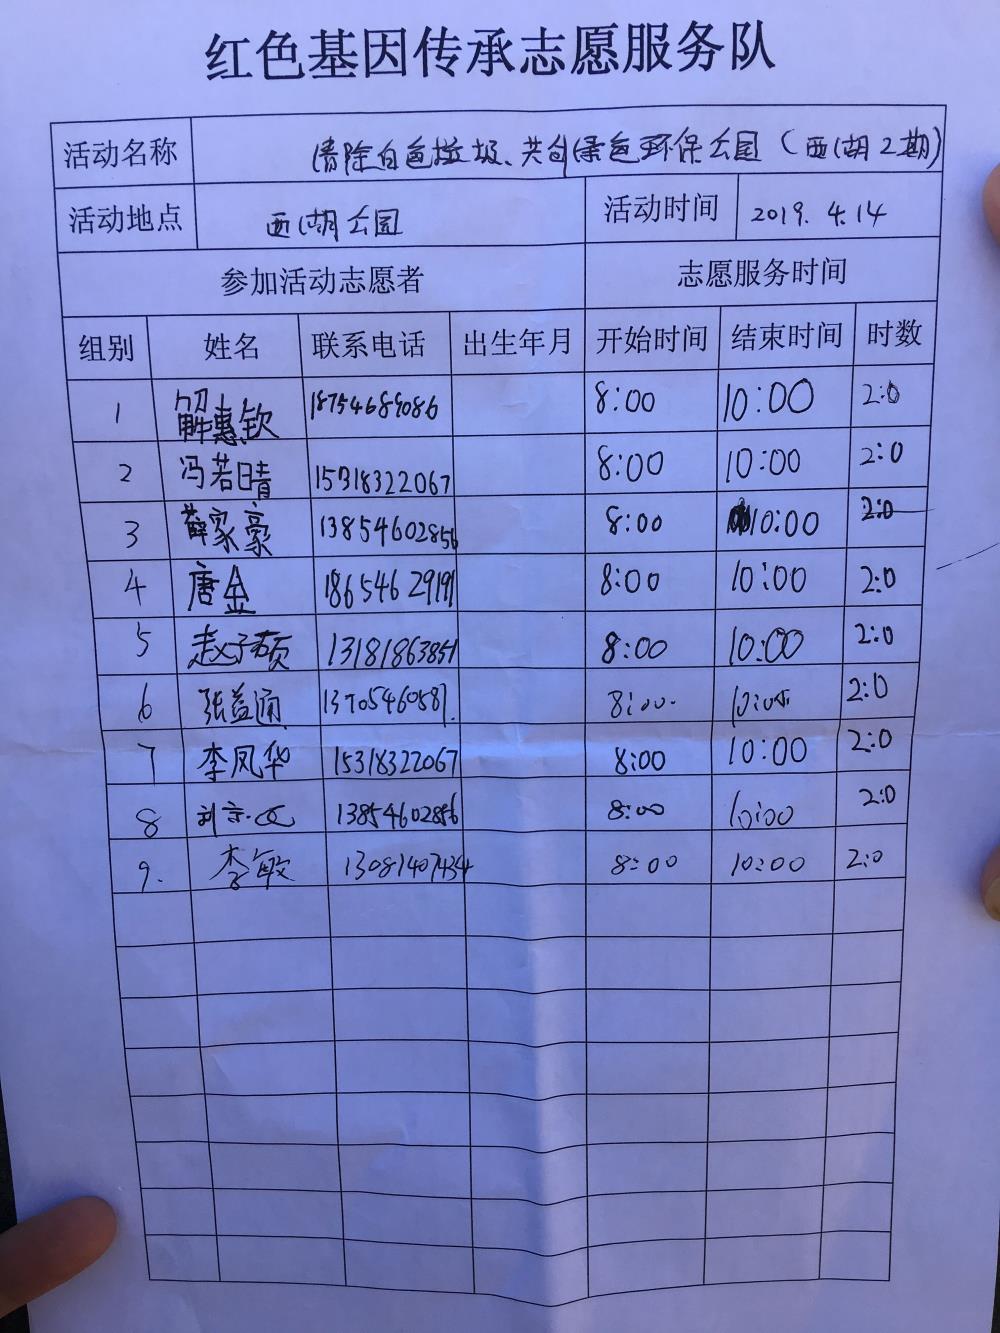 红色基因传承志愿服务队
活动名称 清除白色垃圾、共创绿色环保公园（西湖2期）
活动地点 西湖公园 活动时间 2019.4.14
参加活动志愿者 志愿服务时间
组别 姓名 联系电话 出生年月 开始时间 结束时间 时数
1 解惠钦 18754689086 8:00 10:00 2:0
2 冯若晴 15318322067 8:00 10:00 2:0
3 薛家豪 13854602856 8:00 10:00 2:0
4 唐金 18654629191 8:00 10:00 2:0
5 赵子硕 13181863851 8:00 10:00 2:0
6 张益通 13705460587. 8:00. 10:00 2:0
7 李凤华 15318322067 8:00 10:00 2:0
8 13854602856 8:00 10:00 2:0
9. 李敏 13081407434 8:00 10:00 2:0